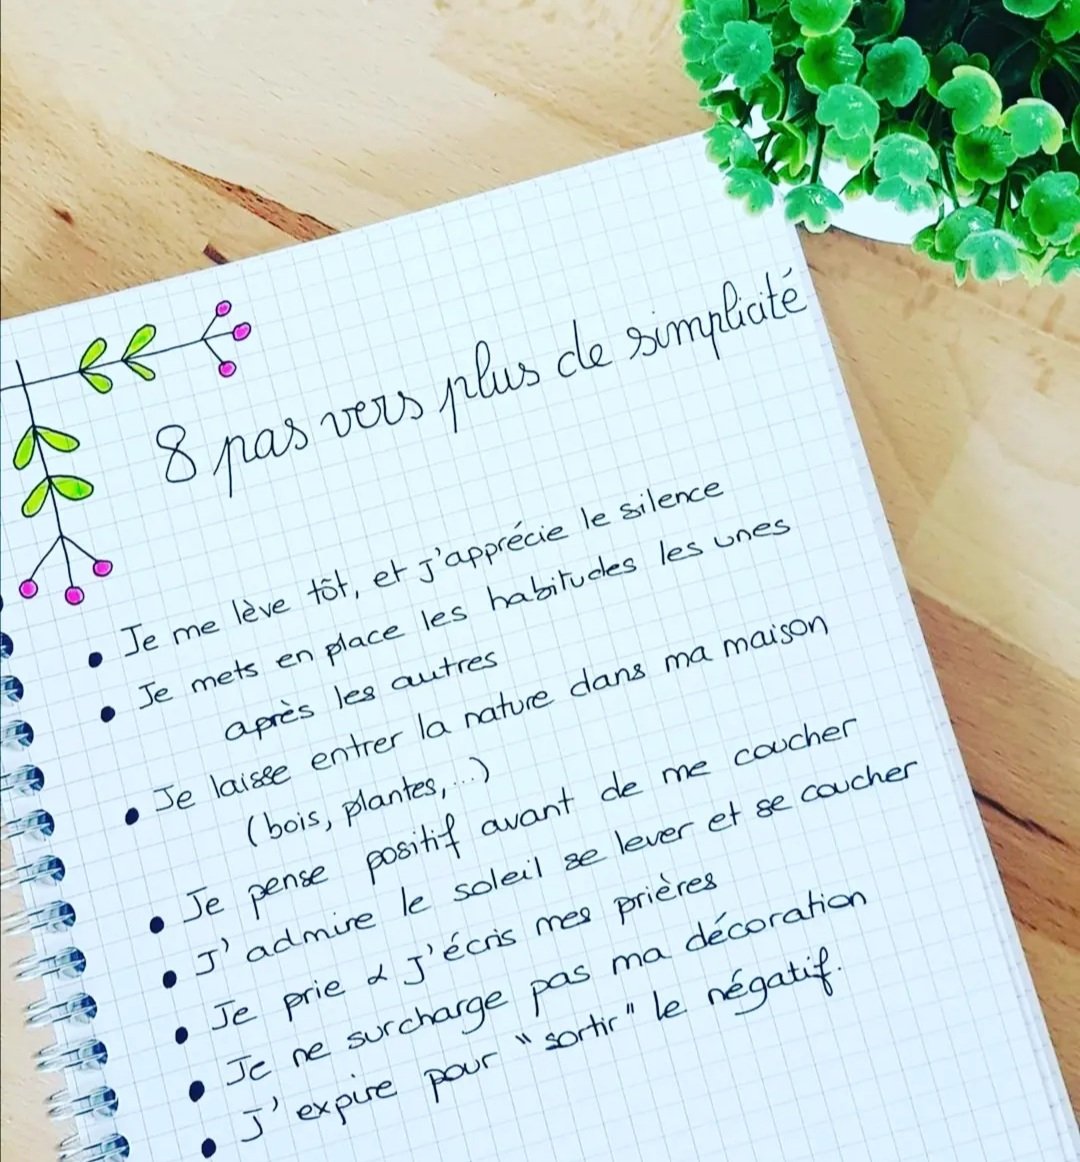 8 pas vers plus de simplicité
• Je me lève tôt, et j'apprécie le silence
• Je mets en place les habitudes les unes
après les autres
• Je laisse entrer la nature dans ma maison
(bois, plantes,...)
• Je pense positif avant de me coucher
• J'admire le soleil se lever et se coucher
• Je prie & j'écris mes prières
• Je ne surcharge pas ma décoration
• J'expire pour "sortir" le négatif.